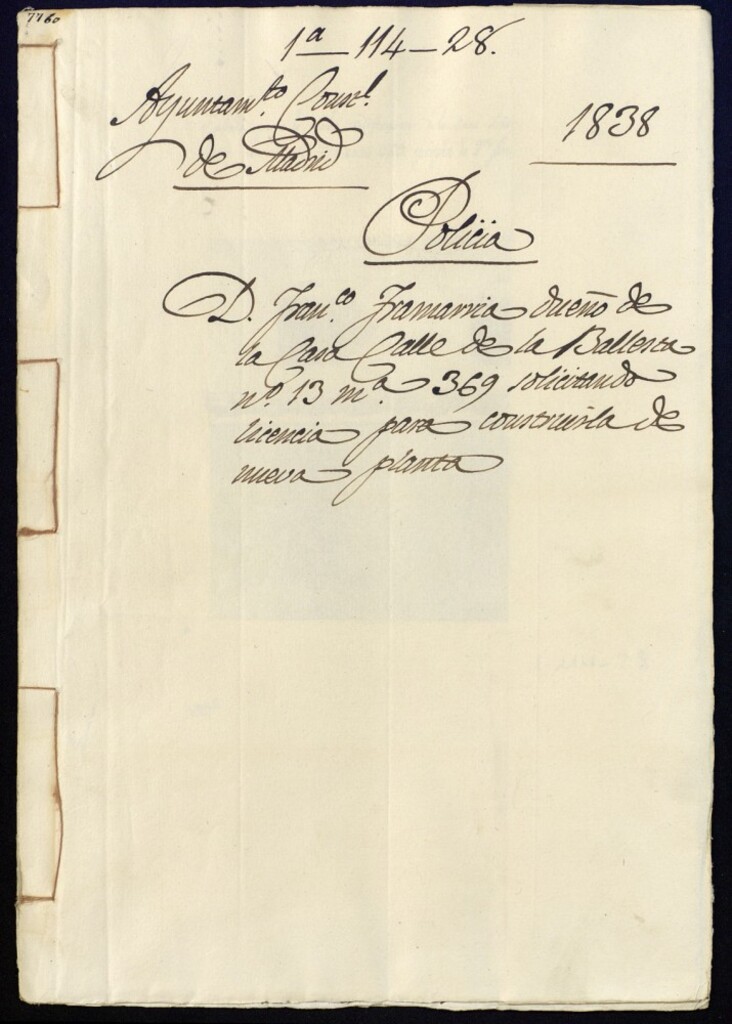 7760
1ª - 114 - 28.
Ayuntam.to Const.l
de Madrid
1838
Policia
D. Fran.co Framarria dueño de
la Casa Calle de la Ballesta
nº. 13 m.ª 369 solicitando
licencia para construirla de
nueva planta